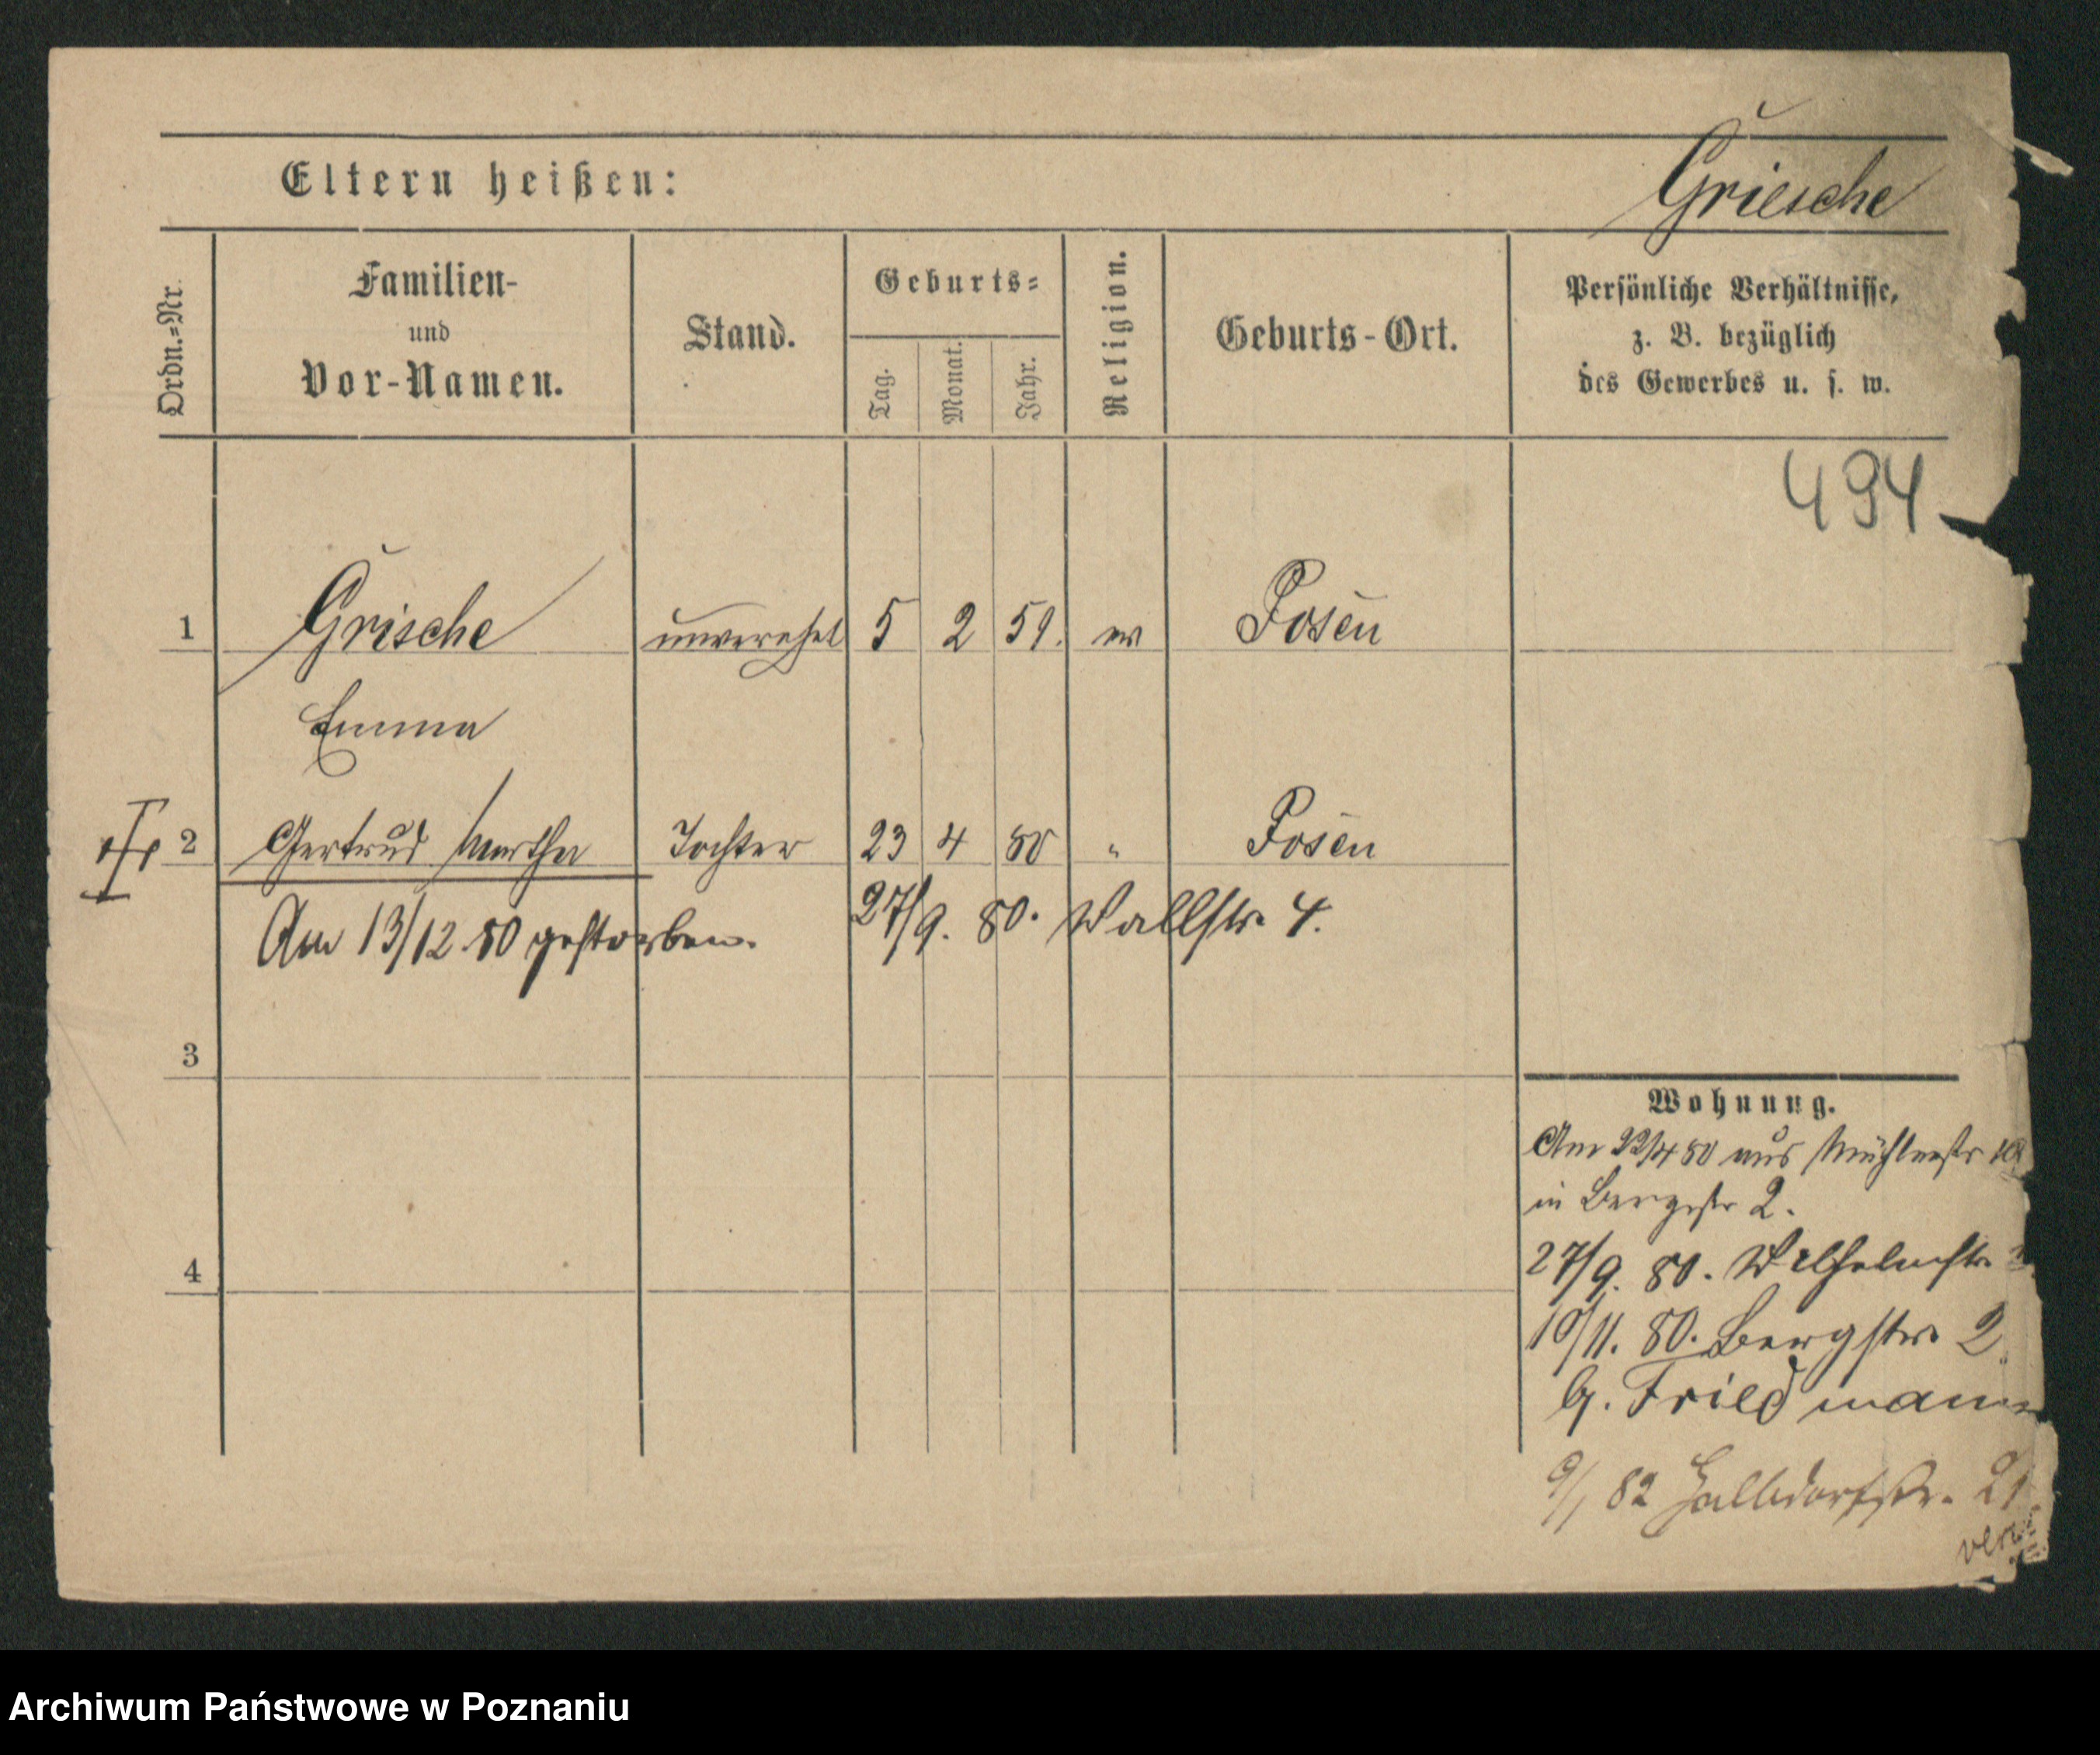 Griesche
Eltern heißen:
Ordn.=Nr.
Familien-
und
Vor-Namen.
Stand.
Geburts=
Tag.
Monat.
Jahr.
Religion.
Geburts-Ort.
Persönliche Verhältnisse,
z. B. bezüglich
des Gewerbes u. s. w.
494
1 Grische unverehel 5 2 59. ev Posen
Emma
2 Gertrud Martha Tochter 23 4 80 " Posen
27/9. 80. Wallstr. 4.
Am 13/12 80 gestorben.
3
4
Wohnung.
Am 22/4 80 aus Mühlenstr
in Bergstr 2.
27/9. 80. Wilhelmstr.
10/11. 80. Bergstr. 2
G. Friedmann
9/1 82 Halbdorfstr. 21
Archiwum Państwowe w Poznaniu